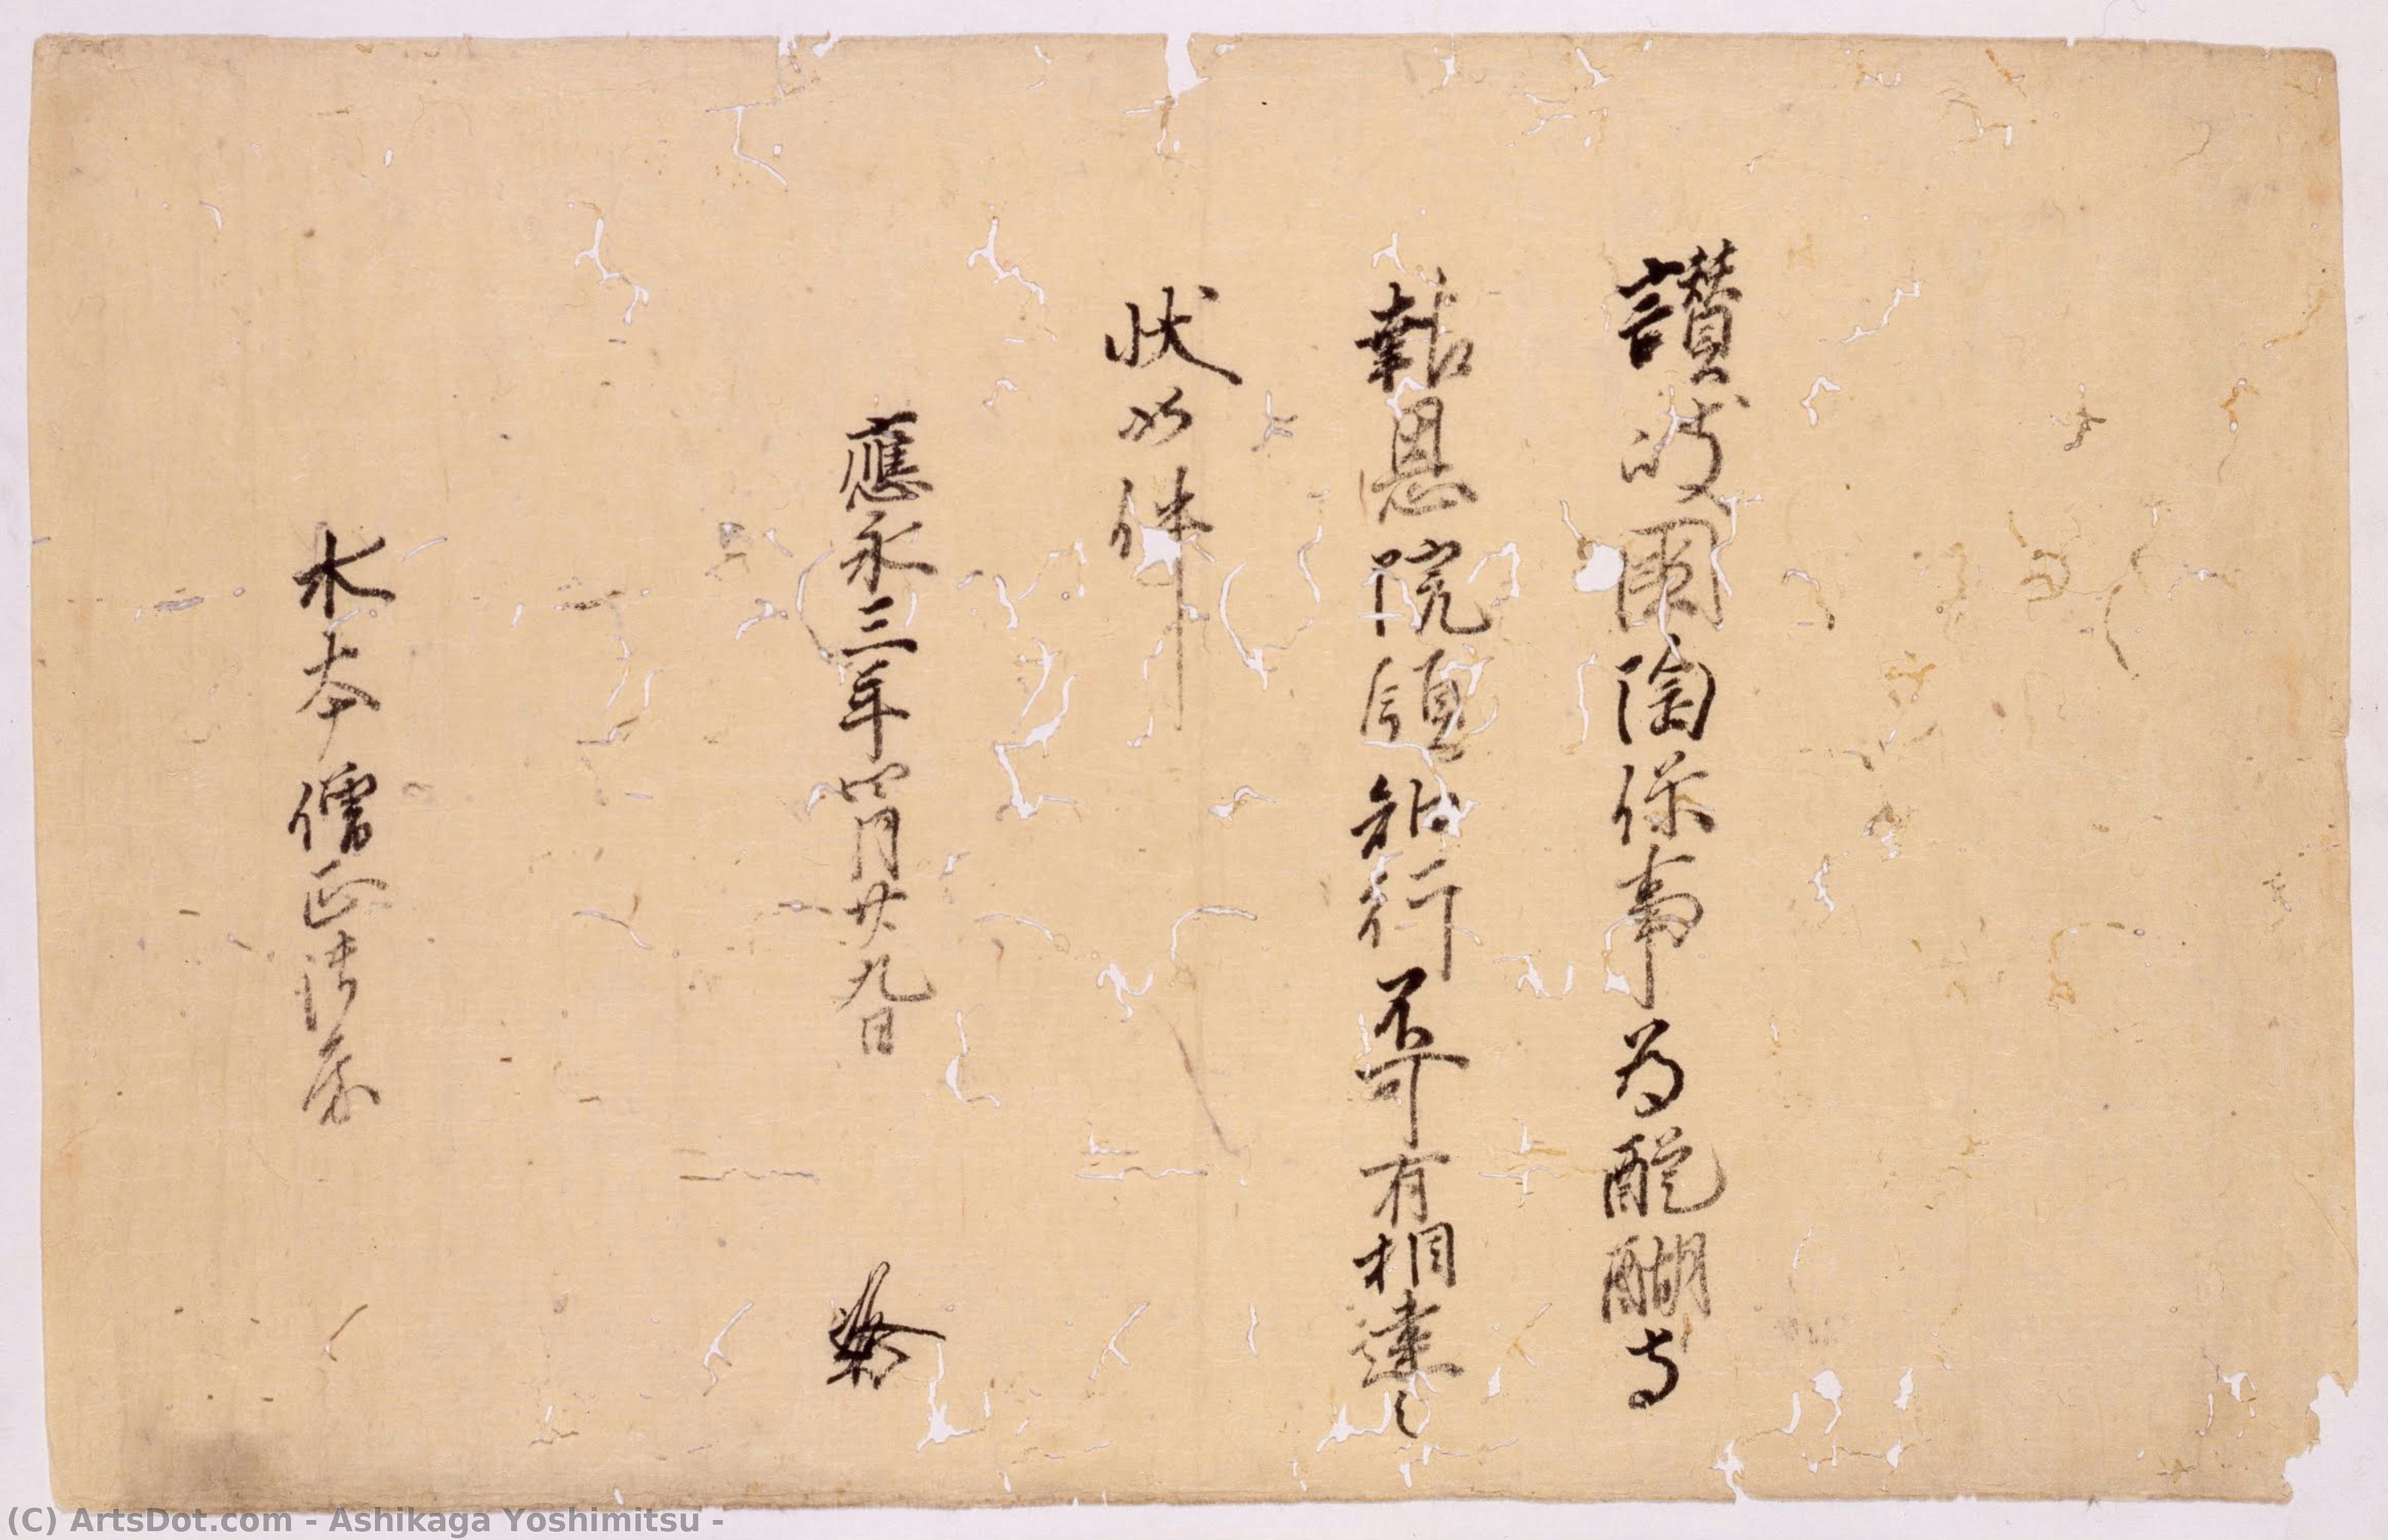 讃岐国陶保事為醍醐寺
報恩院領知行不可有相違之
状如件
應永三年四月廿九日
水本僧正御房
(C) ArtsDot.com - Ashikaga Yoshimitsu -